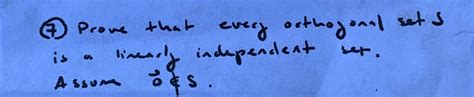 ⑦ Prove that every orthogonal set S
is a linearly independent set.
Assume 0⃗ ∉ S.